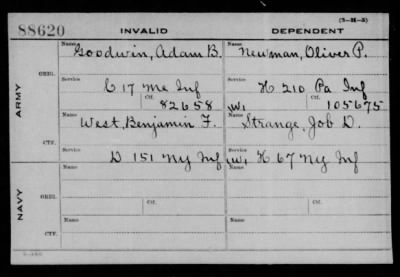 (3-H-3)
88620 INVALID DEPENDENT
Name Goodwin, Adam B. Name Newman, Oliver P.
ORIG.
Service Service
C 17 Me Inf H 210 Pa Inf
Ctf. 82658 W1 Ctf. 105675
ARMY
Name West, Benjamin F. Name Strange, Job D.
CTF.
Service Service
D 151 NY Inf W1 H 67 NY Inf
Name Name
ORIG.
Service Ctf. Service Ctf.
NAVY
Name Name
CTF.